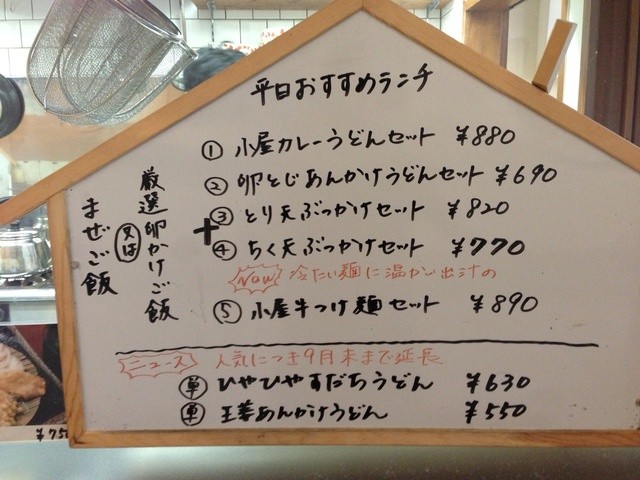 平日おすすめランチ
① 小屋カレーうどんセット ¥880
② 卵とじあんかけうどんセット ¥690
③ とり天ぶっかけセット ¥820
④ ちく天ぶっかけセット ¥770
New 冷たい麺に温かい出汁の
⑤ 小屋牛つけ麺セット ¥890
+
厳選卵かけご飯
又は
まぜご飯
ニュース 人気につき9月末まで延長
単 ひやひやすだちうどん ¥630
単 生姜あんかけうどん ¥550
¥750